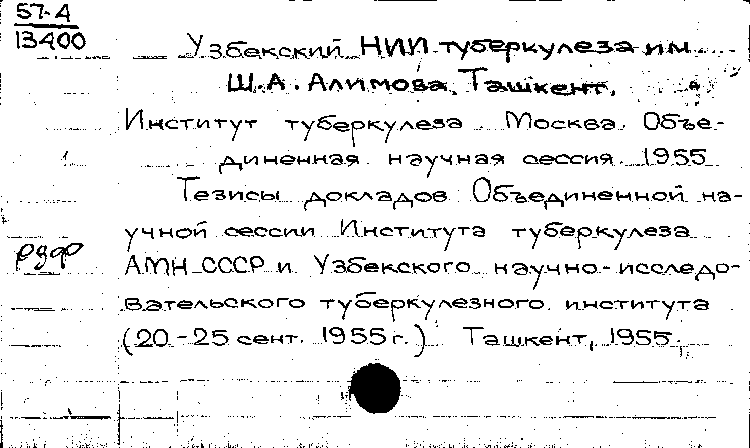 57-4
13400
Узбекский НИИ туберкулеза им.
Ш.А. Алимова. Ташкент.
Институт туберкулеза. Москва. Объе-
диненная научная сессия. 1955
Тезисы докладов Объединенной на-
учной сессии Института туберкулеза
АМН СССР и Узбекского научно-исследо-
вательского туберкулезного института
(20-25 сент. 1955 г.) Ташкент, 1955.